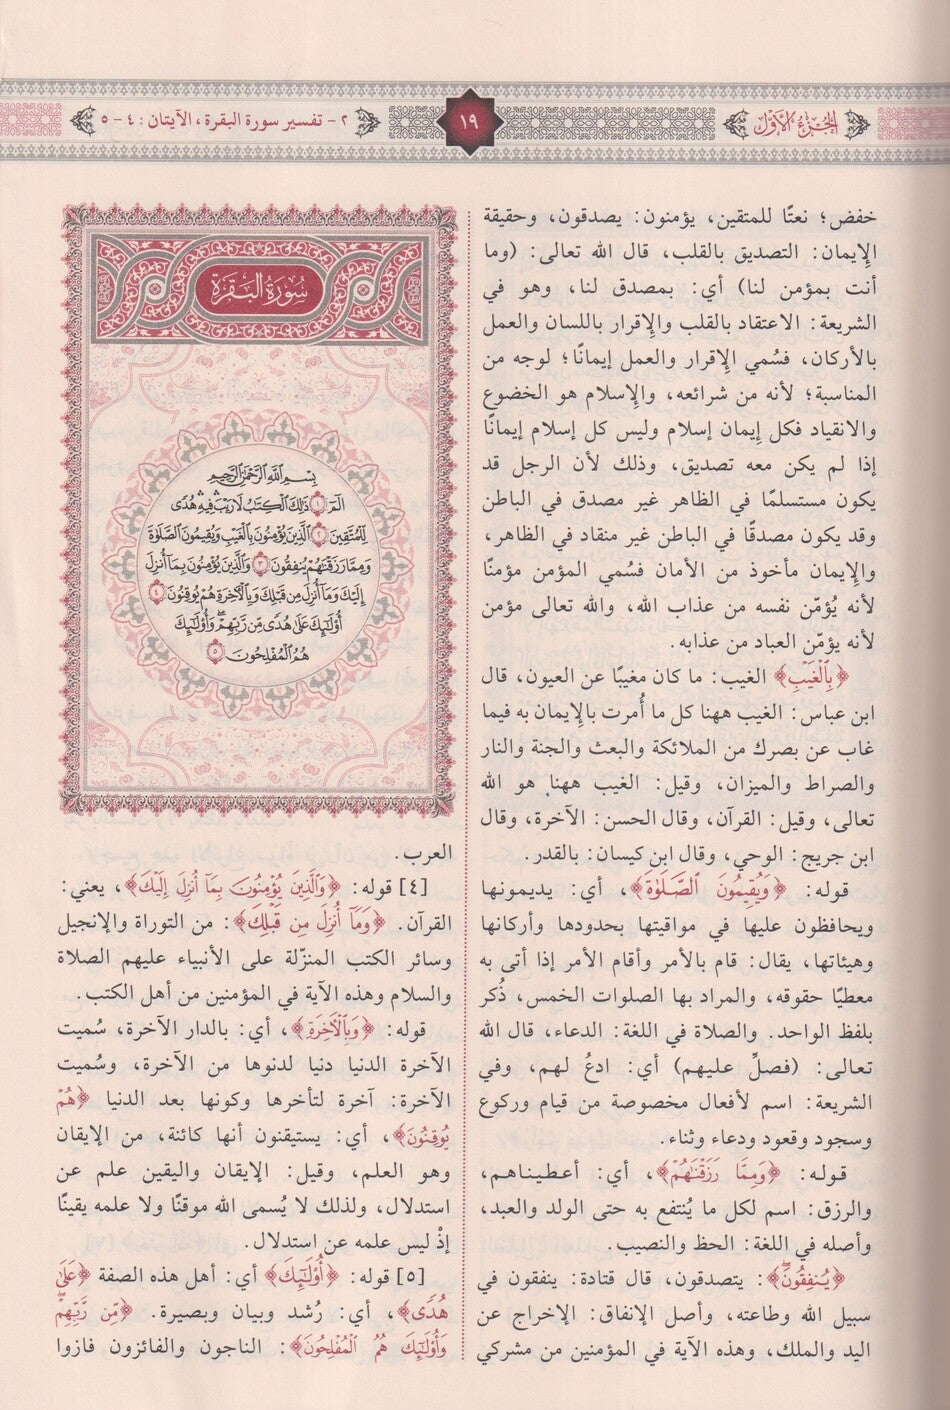 الجزء الأول
١٩
٢- تفسير سورة البقرة، الآيتان: ٤-٥
خفض؛ نعتًا للمتقين، يؤمنون: يصدقون، وحقيقة
الإيمان: التصديق بالقلب، قال الله تعالى: (وما
أنت بمؤمن لنا) أي: بمصدق لنا، وهو في
الشريعة: الاعتقاد بالقلب والإقرار باللسان والعمل
بالأركان، فسُمي الإقرار والعمل إيمانًا؛ لوجه من
المناسبة؛ لأنه من شرائعه، والإسلام هو الخضوع
والانقياد فكل إيمان إسلام وليس كل إسلام إيمانًا
إذا لم يكن معه تصديق، وذلك لأن الرجل قد
يكون مستسلمًا في الظاهر غير مصدق في الباطن
وقد يكون مصدقًا في الباطن غير منقاد في الظاهر،
والإيمان مأخوذ من الأمان فسُمي المؤمن مؤمنًا
لأنه يُؤمّن نفسه من عذاب الله، والله تعالى مؤمن
لأنه يؤمّن العباد من عذابه.
﴿بِٱلْغَيْبِ﴾ الغيب: ما كان مغيبًا عن العيون، قال
ابن عباس: الغيب ههنا كل ما أُمرت بالإيمان به فيما
غاب عن بصرك من الملائكة والبعث والجنة والنار
والصراط والميزان، وقيل: الغيب ههنا هو الله
تعالى، وقيل: القرآن، وقال الحسن: الآخرة، وقال
ابن جريج: الوحي، وقال ابن كيسان: بالقدر.
قوله: ﴿وَيُقِيمُونَ ٱلصَّلَوٰةَ﴾، أي: يديمونها
ويحافظون عليها في مواقيتها بحدودها وأركانها
وهيئاتها، يقال: قام بالأمر وأقام الأمر إذا أتى به
معطيًا حقوقه، والمراد بها الصلوات الخمس، ذُكر
بلفظ الواحد. والصلاة في اللغة: الدعاء، قال الله
تعالى: (فصلِّ عليهم) أي: ادعُ لهم، وفي
الشريعة: اسم لأفعال مخصوصة من قيام وركوع
وسجود وقعود ودعاء وثناء.
قوله: ﴿وَمِمَّا رَزَقْنَٰهُمْ﴾، أي: أعطيناهم،
والرزق: اسم لكل ما يُنتفع به حتى الولد والعبد،
وأصله في اللغة: الحظ والنصيب.
﴿يُنفِقُونَ﴾: يتصدقون، قال قتادة: ينفقون في
سبيل الله وطاعته، وأصل الإنفاق: الإخراج عن
اليد والملك، وهذه الآية في المؤمنين من مشركي
سُورَةُ البَقَرَةِ
بِسْمِ ٱللَّهِ ٱلرَّحْمَٰنِ ٱلرَّحِيمِ
الٓمٓ ١ ذَٰلِكَ ٱلْكِتَٰبُ لَا رَيْبَ ۛ فِيهِ ۛ هُدًى
لِّلْمُتَّقِينَ ٢ ٱلَّذِينَ يُؤْمِنُونَ بِٱلْغَيْبِ وَيُقِيمُونَ ٱلصَّلَوٰةَ
وَمِمَّا رَزَقْنَٰهُمْ يُنفِقُونَ ٣ وَٱلَّذِينَ يُؤْمِنُونَ بِمَآ أُنزِلَ
إِلَيْكَ وَمَآ أُنزِلَ مِن قَبْلِكَ وَبِٱلْآخِرَةِ هُمْ يُوقِنُونَ ٤
أُو۟لَٰٓئِكَ عَلَىٰ هُدًى مِّن رَّبِّهِمْ ۖ وَأُو۟لَٰٓئِكَ
هُمُ ٱلْمُفْلِحُونَ ٥
العرب.
[٤] قوله: ﴿وَٱلَّذِينَ يُؤْمِنُونَ بِمَآ أُنزِلَ إِلَيْكَ﴾، يعني:
القرآن. ﴿وَمَآ أُنزِلَ مِن قَبْلِكَ﴾: من التوراة والإنجيل
وسائر الكتب المنزّلة على الأنبياء عليهم الصلاة
والسلام وهذه الآية في المؤمنين من أهل الكتب.
قوله: ﴿وَبِٱلْآخِرَةِ﴾، أي: بالدار الآخرة، سُميت
الآخرة الدنيا دنيا لدنوها من الآخرة، وسُميت
الآخرة: آخرة لتأخرها وكونها بعد الدنيا ﴿هُمْ
يُوقِنُونَ﴾، أي: يستيقنون أنها كائنة، من الإيقان
وهو العلم، وقيل: الإيقان واليقين علم عن
استدلال، ولذلك لا يُسمى الله موقنًا ولا علمه يقينًا
إذْ ليس علمه عن استدلال.
[٥] قوله: ﴿أُو۟لَٰٓئِكَ﴾ أي: أهل هذه الصفة ﴿عَلَىٰ
هُدًى﴾، أي: رُشد وبيان وبصيرة. ﴿مِّن رَّبِّهِمْ ۖ
وَأُو۟لَٰٓئِكَ هُمُ ٱلْمُفْلِحُونَ﴾: الناجون والفائزون فازوا